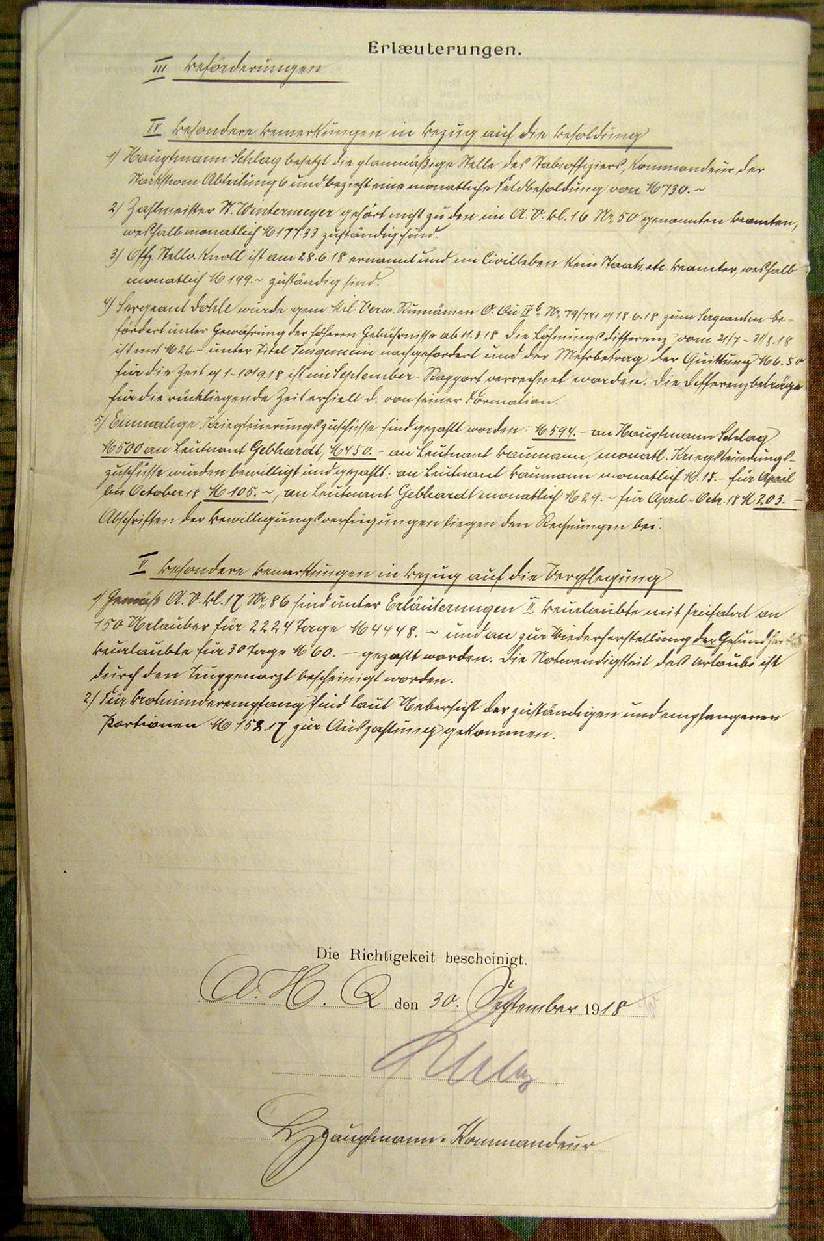 Erlæuterungen.
III Beförderungen
IV Besondere Bemerkungen in Bezug auf die Besoldung
1) Hauptmann Schlag besetzt die planmäßige Stelle des Staboffiziers, Kommandeur der
Starkstrom Abteilung 6 und bezieht eine monatliche Feldbesoldung von M 730.–
2) Zahlmeister W. Wintermeyer gehört nicht zu den im A.V.Bl. 16 Nr. 50 genannten Beamten,
weshalb monatlich M 177.33 zuständig sind
3) Knoll ist am 28.6.18 ernannt und im Civilleben kein Staats etc. Beamter, weshalb
monatlich M 199.– zuständig sind.
4) Sergeant Dohle wurde gem. Mil. Verw. Rumänien 18.6.18 zum Sergeanten be-
fördert unter Gewährung der höheren Gebührnisse ab 11.3.18 die Löhnungsdifferenz vom
ist mit M 26.– unter Titel nachgefordert und der Mehrbetrag der Quittung M 6.50
für die Zeit ist im September Rapport verrechnet worden. Die Differenzbeträge
für die rückliegende Zeit erhielt D. von seiner Formation.
5) Einmalige Kriegsteuerungszuschüsse sind gezahlt worden: M 594.– an Hauptmann Schlag
M 500 an Leutnant Gebhardt, M 450.– an Leutnant Baumann, monatl. Kriegsteuerungs-
zuschüsse wurden bewilligt und gezahlt: an Leutnant Baumann monatlich M 15.– für April
bis October 18 M 105.–, an Leutnant Gebhardt monatlich M 29.– für April–Octr. 18 M 203.–
Abschriften der Bewilligungsverfügungen liegen den Rechnungen bei.
V Besondere Bemerkungen in Bezug auf die Verpflegung
1) Gemäß A.V.Bl. 17 Nr. 86 sind unter Erläuterungen II Beurlaubte mit an
150 Urlauber für 2224 Tage M 4448.– und an zur Wiederherstellung der Gesundheit
Beurlaubte für 30 Tage M 60.– gezahlt worden. Die Notwendigkeit des Urlaubs ist
durch den Truppenarzt bescheinigt worden.
2) Für Brotminderempfang sind laut Uebersicht der zuständigen und empfangenen
Portionen M 158.17 zur Auszahlung gekommen.
Die Richtigekeit bescheinigt.
A. H. Q den 30. September 1918
Schlag
Hauptmann u. Kommandeur